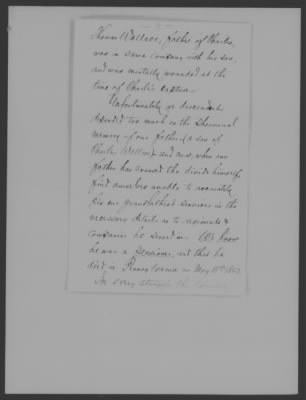 2
Thomas Wallace, father of Charles,
was in same company with his son,
and was mortally wounded at the
time of Charlie's capture.
Unfortunately we descendants
depended too much on the phenominal
memory of our father (a son of
Charles Wallace) and now, when our
father has crossed the divide himself
find ourselves unable to accurately
fix our grandfathers services in the
necessary details as to regiments &
companies he served in. We know
he was a pensioner, and that he
died in Pennsylvania on May 15th
In every struggle the country